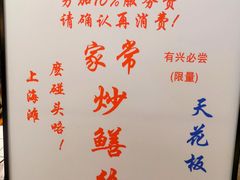 另加10%服务费
请确认再消费!
家常炒鳝
有兴必尝
(限量)
天花板
麽碰头咯!
上海滩